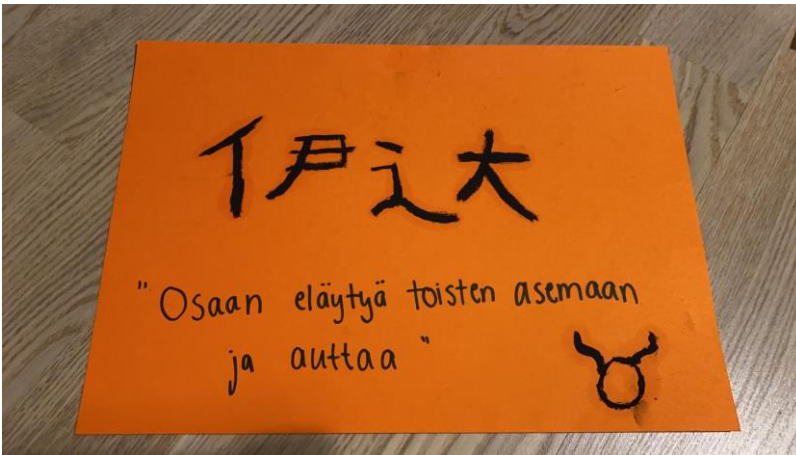 伊达
"Osaan eläytyä toisten asemaan
ja auttaa"
♉